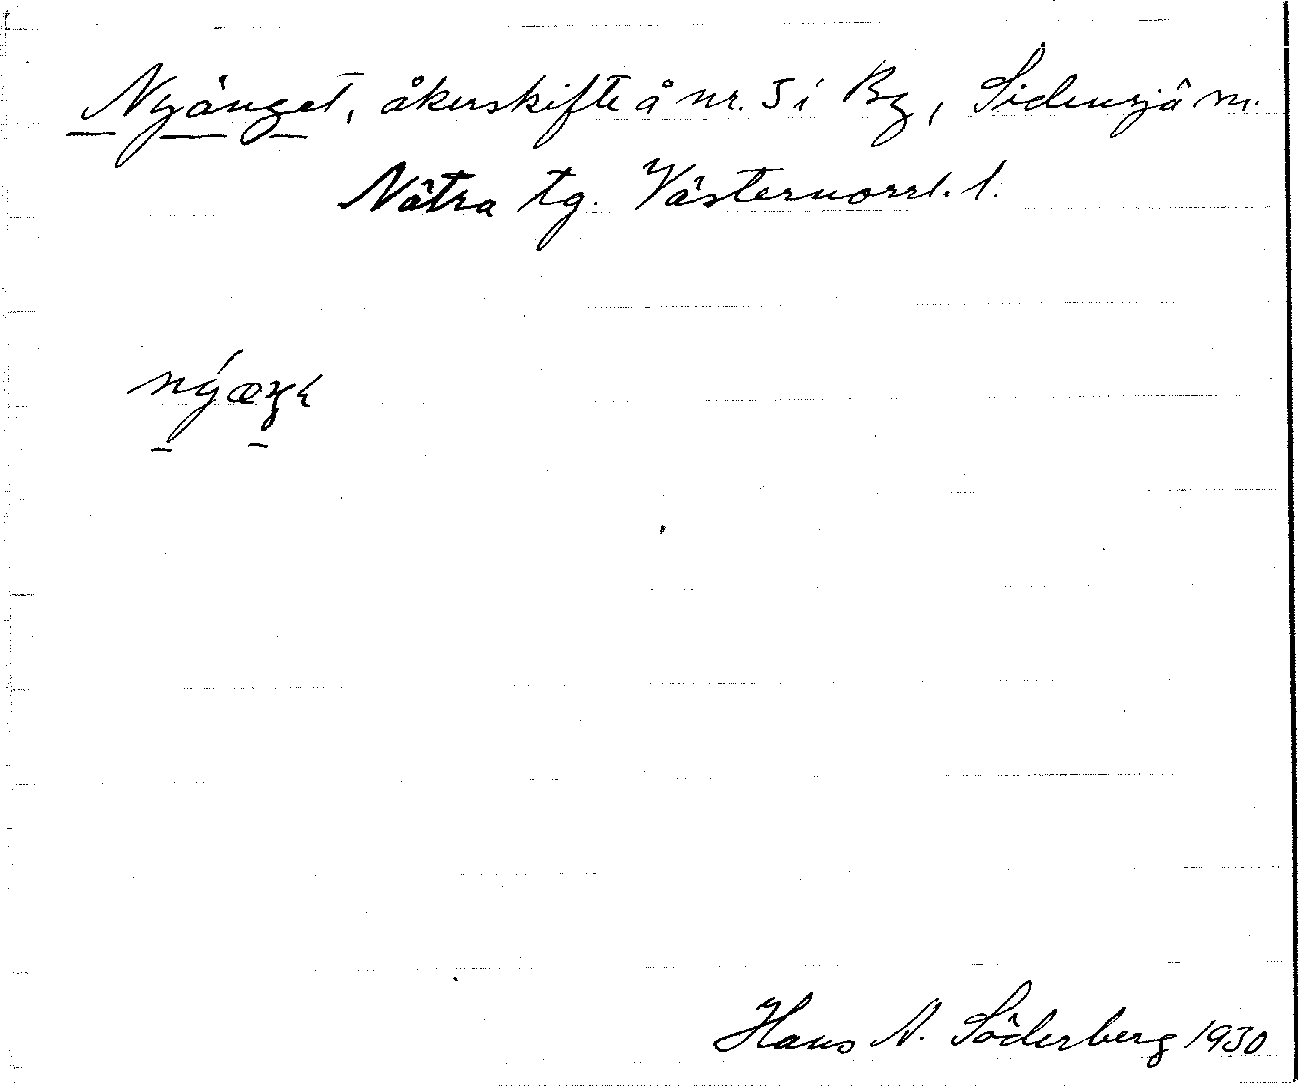 Nyänget, åkerskifte å nr. 5 i By, Sidensjö sn.
Nätra tg. Västernorrl. l.
Hans N. Söderberg 1930